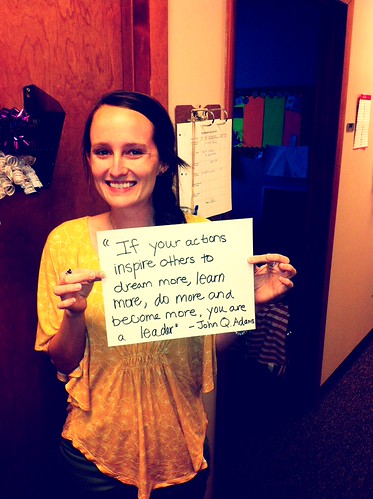 "If your actions
inspire others to
dream more, learn
more, do more and
become more, you are
a leader" - John Q. Adams